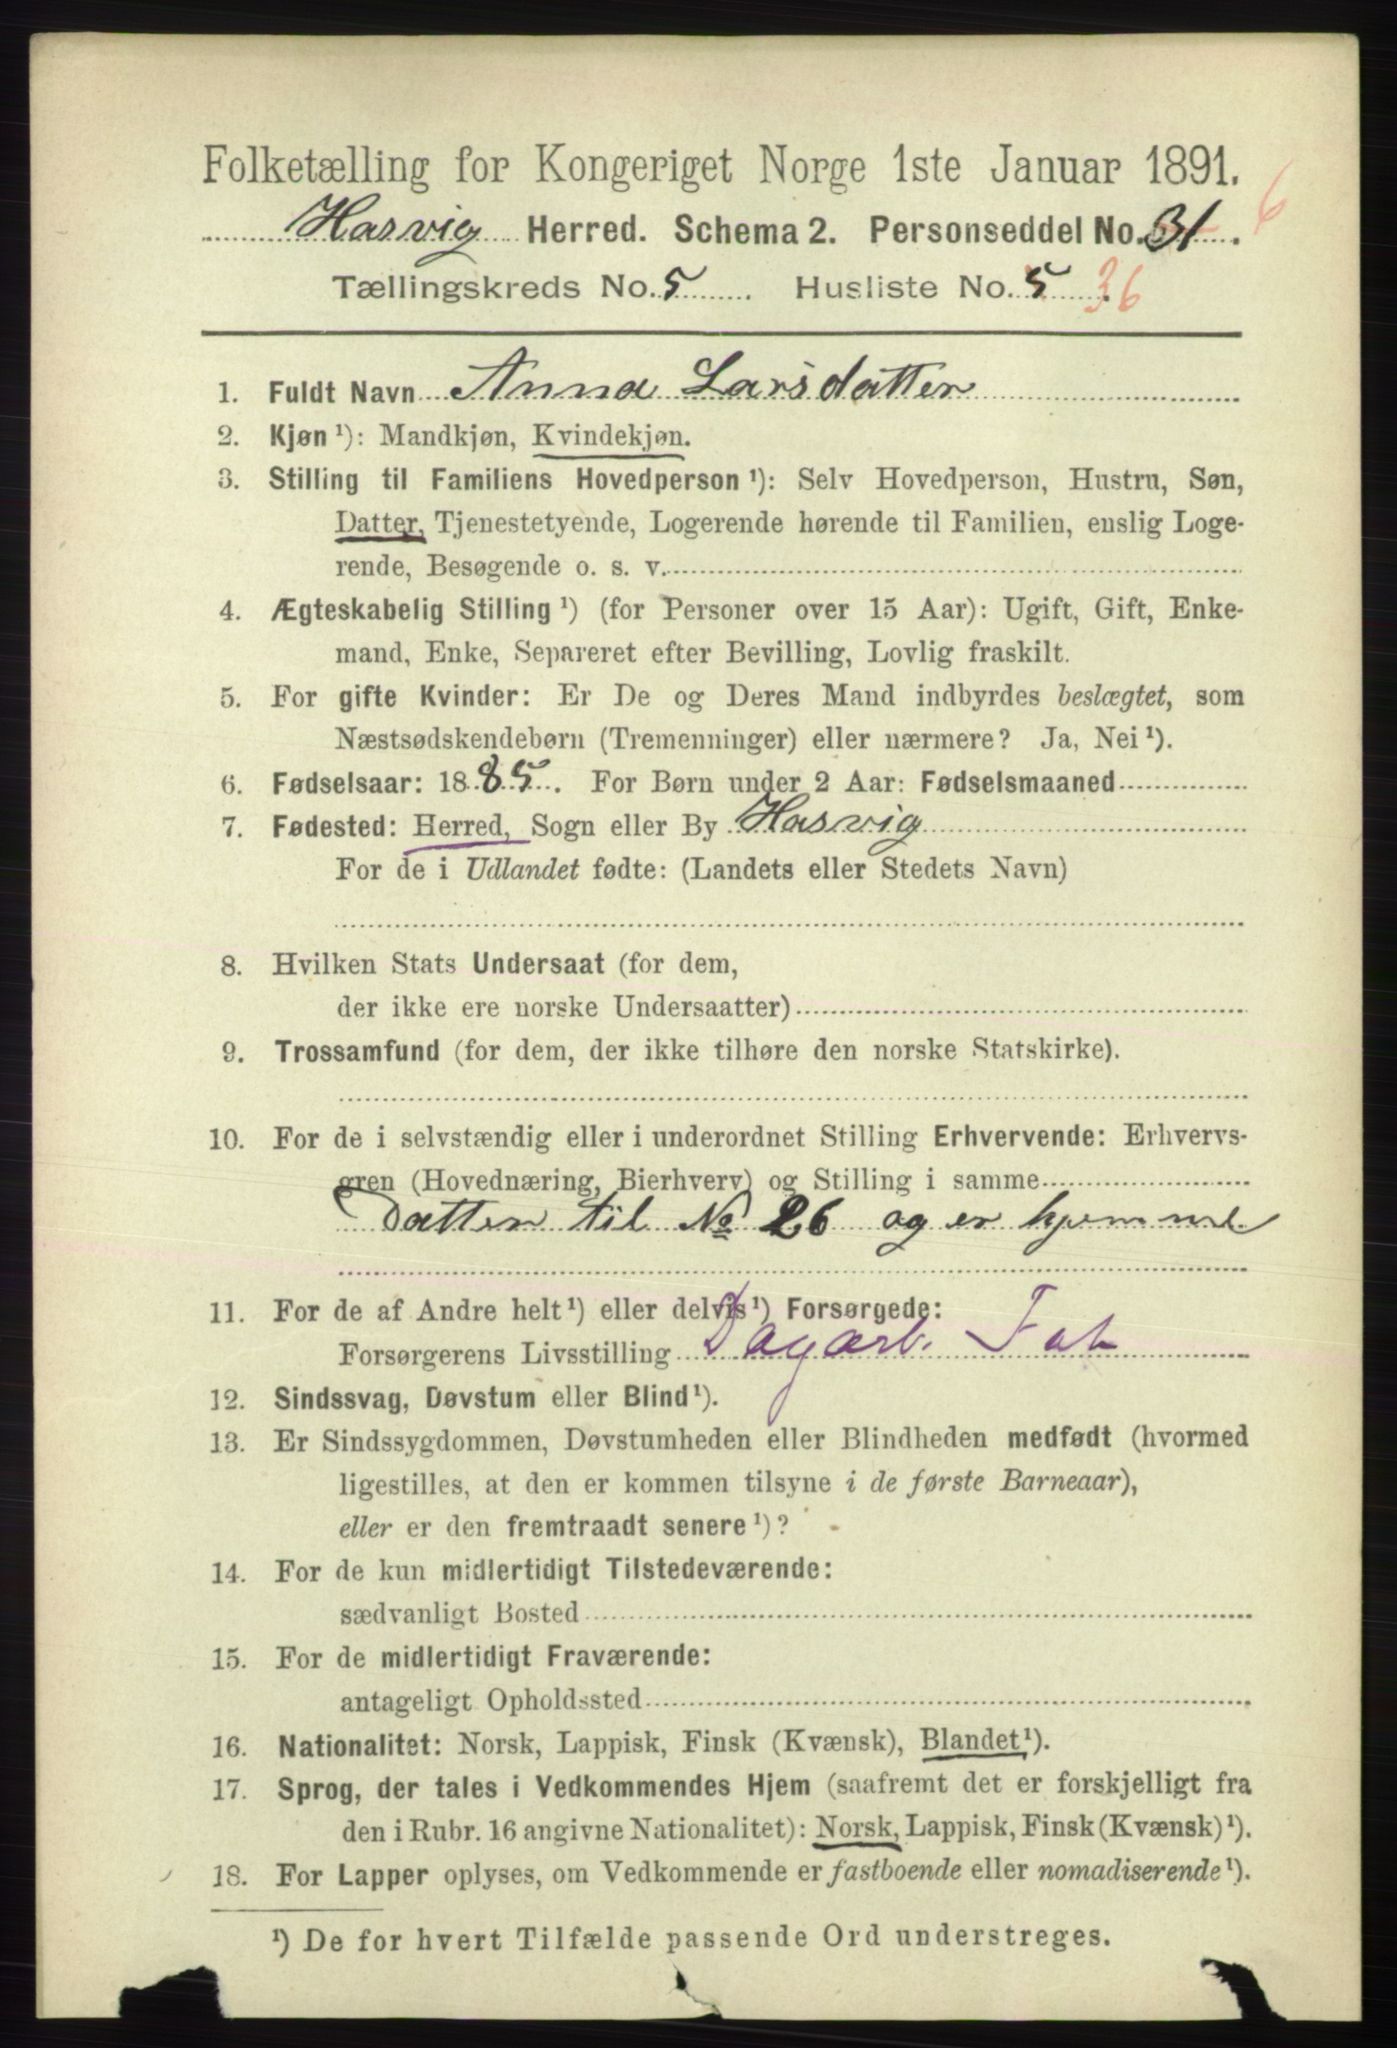 Folketælling for Kongeriget Norge 1ste Januar 1891.
Hasvig Herred. Schema 2. Personseddel No. 31. 6
Tællingskreds No. 5. Husliste No. 5. 36
1. Fuldt Navn Anna Larsdatter
2. Kjøn ¹): Mandkjøn, Kvindekjøn.
3. Stilling til Familiens Hovedperson ¹): Selv Hovedperson, Hustru, Søn,
Datter, Tjenestetyende, Logerende hørende til Familien, enslig Loge-
rende, Besøgende o. s. v.
4. Ægteskabelig Stilling ¹) (for Personer over 15 Aar): Ugift, Gift, Enke-
mand, Enke, Separeret efter Bevilling, Lovlig fraskilt.
5. For gifte Kvinder: Er De og Deres Mand indbyrdes beslægtet, som
Næstsødskendebørn (Tremenninger) eller nærmere? Ja, Nei ¹).
6. Fødselsaar: 1885. For Børn under 2 Aar: Fødselsmaaned
7. Fødested: Herred, Sogn eller By Hasvig
For de i Udlandet fødte: (Landets eller Stedets Navn)
8. Hvilken Stats Undersaat (for dem,
der ikke ere norske Undersaatter)
9. Trossamfund (for dem, der ikke tilhøre den norske Statskirke).
10. For de i selvstændig eller i underordnet Stilling Erhvervende: Erhvervs-
gren (Hovednæring, Bierhverv) og Stilling i samme
Datter til No 26 og er hjemme
11. For de af Andre helt ¹) eller delvis ¹) Forsørgede:
Forsørgerens Livsstilling Dagarb. Fat
12. Sindssvag, Døvstum eller Blind ¹).
13. Er Sindssygdommen, Døvstumheden eller Blindheden medfødt (hvormed
ligestilles, at den er kommen tilsyne i de første Barneaar),
eller er den fremtraadt senere ¹)?
14. For de kun midlertidigt Tilstedeværende:
sædvanligt Bosted
15. For de midlertidigt Fraværende:
antageligt Opholdssted
16. Nationalitet: Norsk, Lappisk, Finsk (Kvænsk), Blandet ¹).
17. Sprog, der tales i Vedkommendes Hjem (saafremt det er forskjelligt fra
den i Rubr. 16 angivne Nationalitet): Norsk, Lappisk, Finsk (Kvænsk) ¹).
18. For Lapper oplyses, om Vedkommende er fastboende eller nomadiserende ¹).
¹) De for hvert Tilfælde passende Ord understreges.